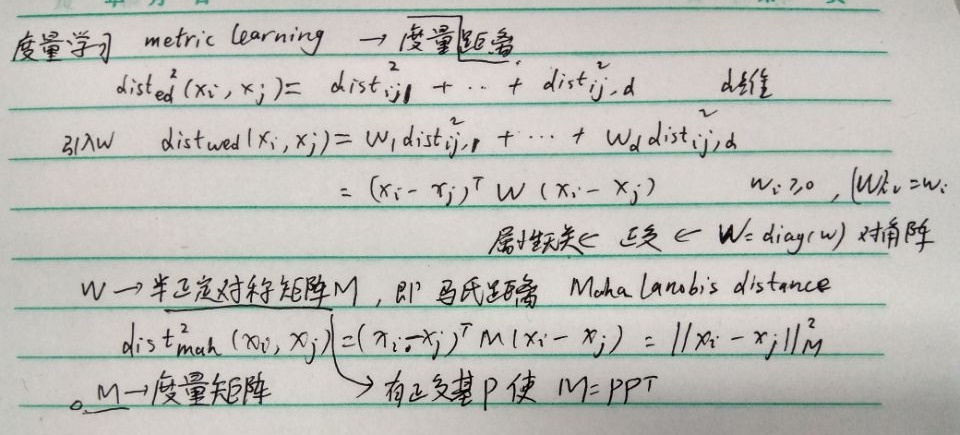 度量学习 metric learning → 度量距离
dist²ed(xi, xj) = dist²ij,1 + ‥ + dist²ij,d d维
引入W distwed(xi, xj) = W1dist²ij,1 + ⋯ + Wd dist²ij,d
= (xi − xj)ᵀ W (xi − xj) wi≥0, (W)ii=wi
属性无关 ← 正交 ← W=diag(w) 对角阵
W → 半正定对称矩阵M, 即马氏距离 Mahalanobis distance
dist²mah(xi, xj) = (xi − xj)ᵀ M (xi − xj) = ||xi − xj||²M
M → 度量矩阵 → 有正交基P使 M=PPᵀ